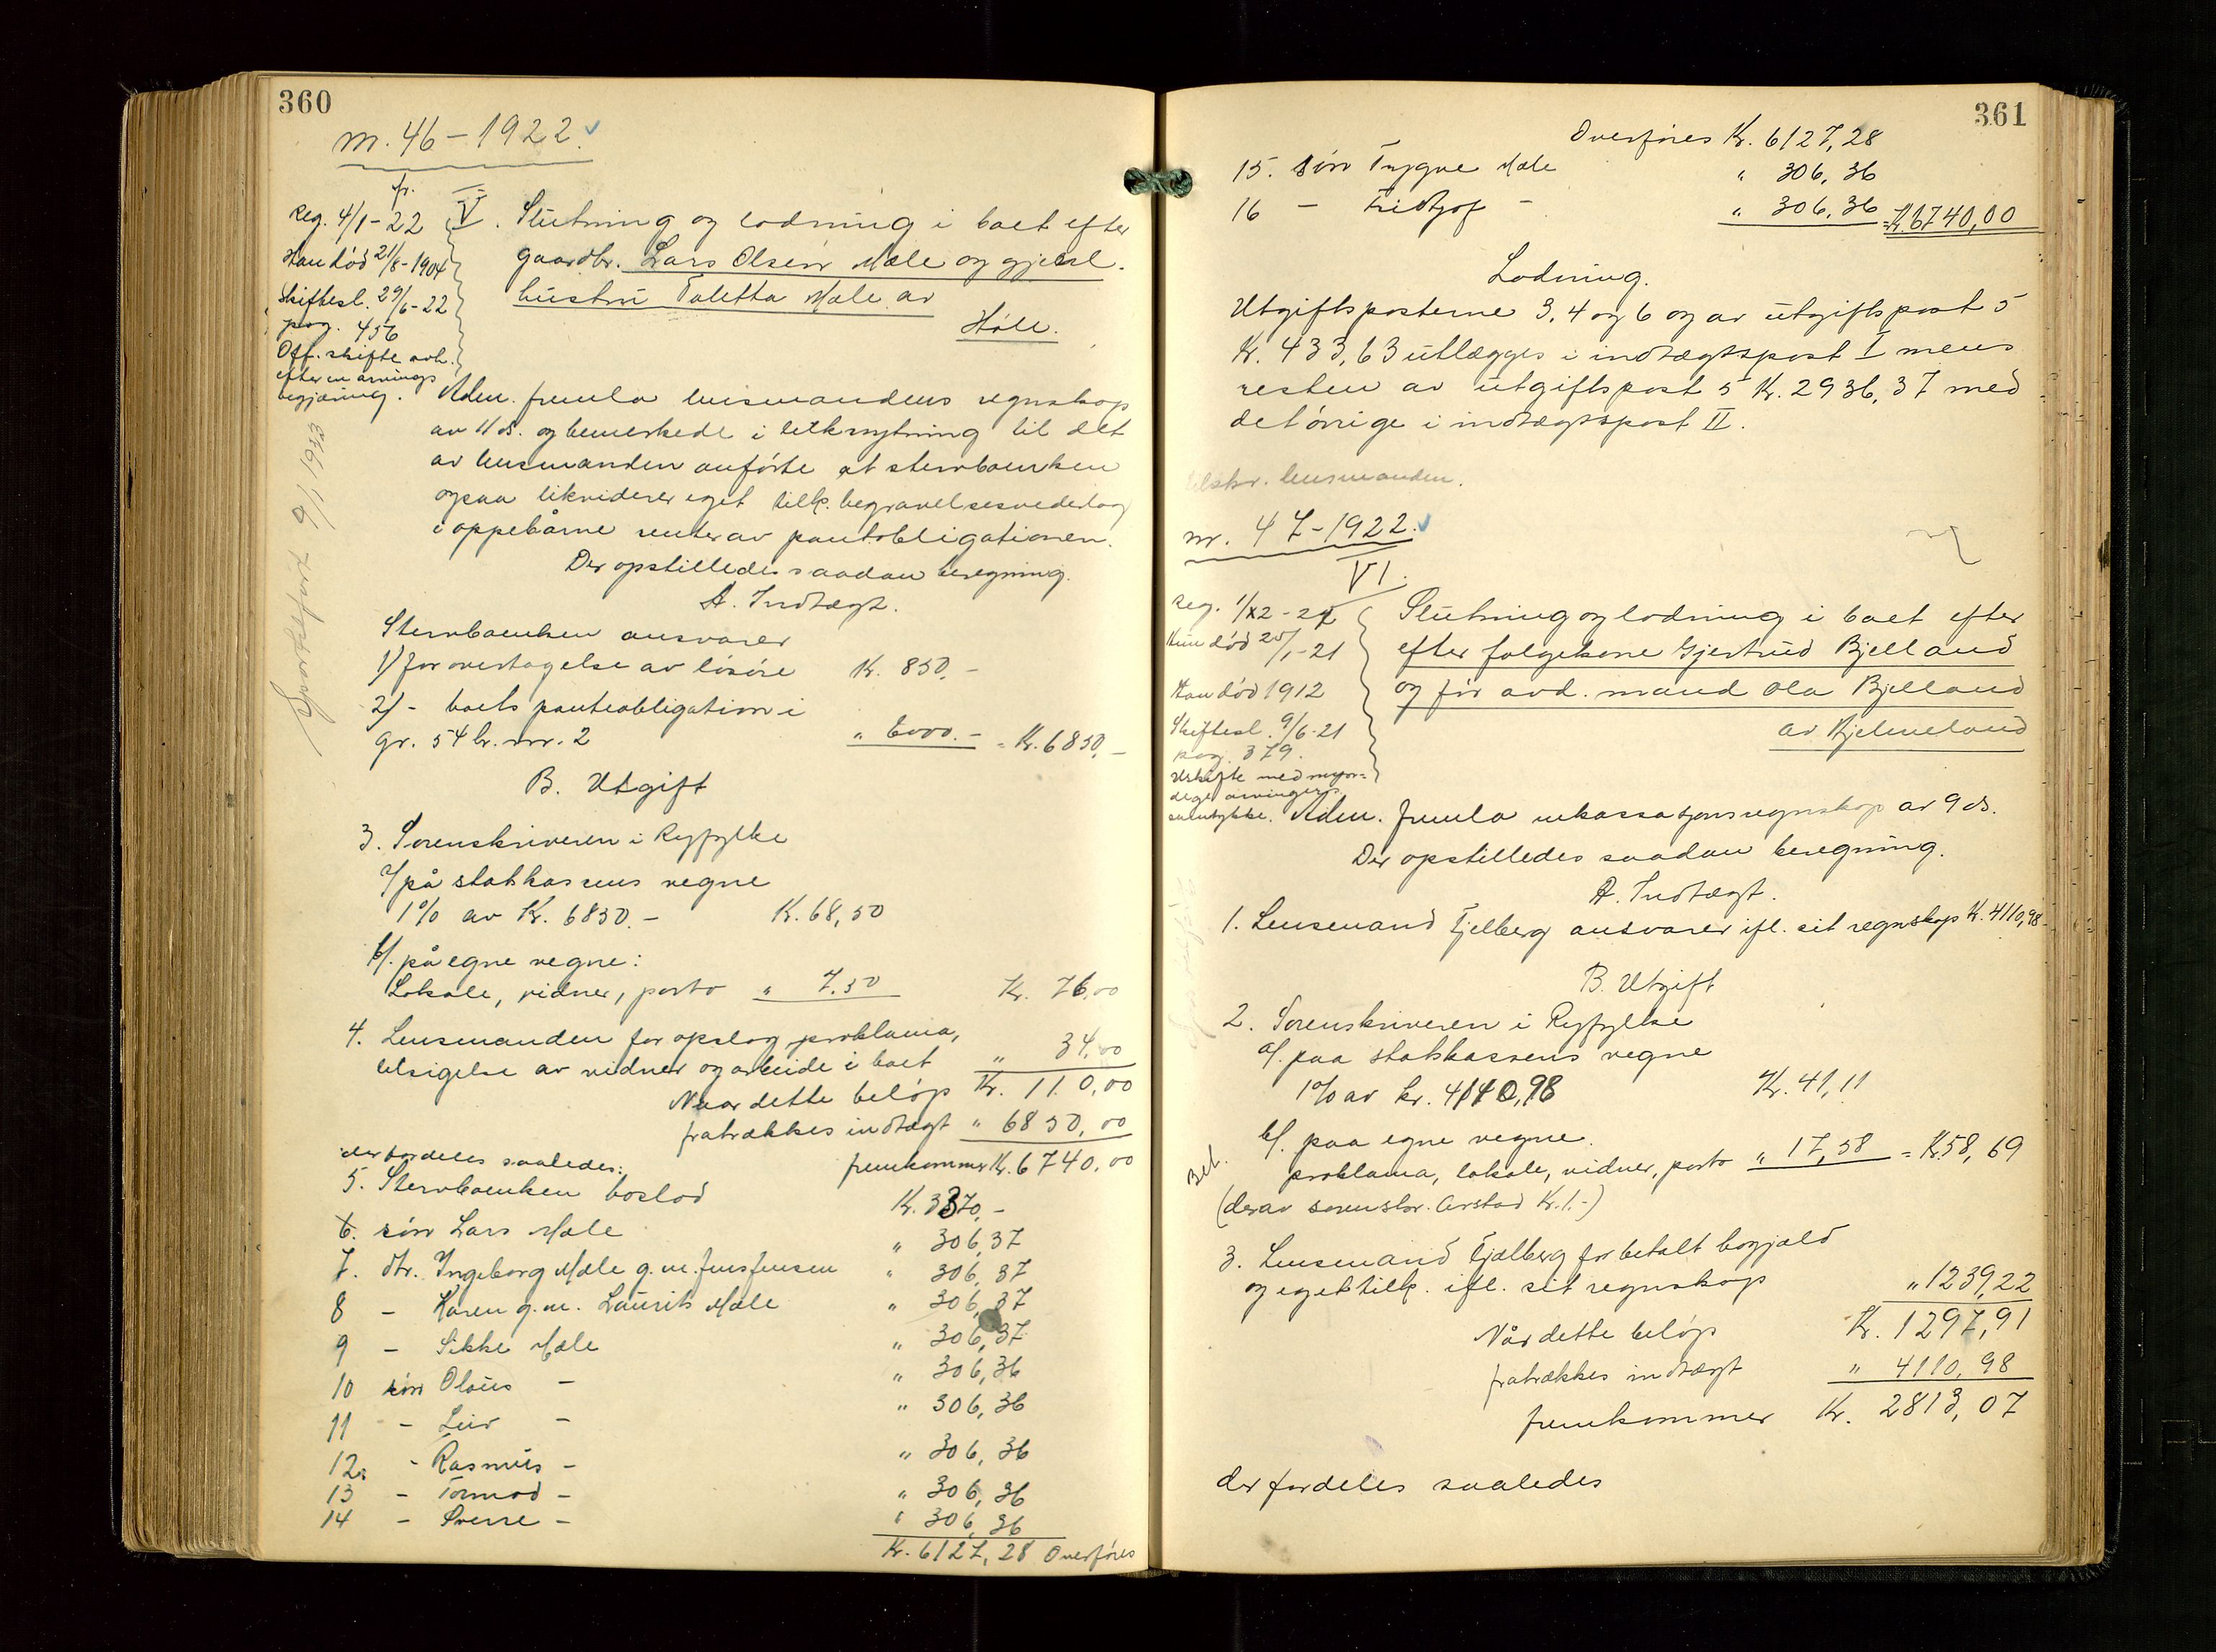 360
m. 46 - 1922.
fr.
Reg. 4/1-22
Han død 21/8-1904
Skiftesl. 29/6-22
pag. 456
Off. skifte avh.
efter en arvings
begjæring.
V. Slutning og lodning i boet efter
gaardbr. Lars Olsen Mæle og gjenl.
hustru Taletta Mæle av
Høle.
Adm. fremla lensmandens regnskap
av 11 ds. og bemerkede i tilknytning til det
av lensmanden anførte at stervboenken
ogsaa likviderer eget tilk. begravelsesvederlag
i oppebårne renter av pantobligationen.
Der opstilledes saadan beregning.
A. Indtægt.
Stervboenken ansvarer
1) for overtagelse av løsøre Kr. 850,-
2) - boets panteobligation i
gr. 54 br. nr. 2 " 6000.- = Kr. 6850,-
B. Utgift
3. Sorenskriveren i Ryfylke
a/ på statskassens vegne
1% av Kr. 6850.- K. 68,50
b/. på egne vegne:
Lokale, vidner, porto " 7.50 Kr. 76,00
4. Lensmanden for opslag proklama,
tilsigelse av vidner og arbeide i boet " 34,00
Naar dette beløp Kr. 110,00
fratrækkes indtægt " 6850,00
fremkommer Kr. 6740.00
der fordeles saaledes:
5. Stervboenken boslod Kr. 3370,-
6. søn Lars Mæle " 306,37
7. dtr. Ingeborg Mæle g.m. Jens Jensen " 306,37
8 - Karen g.m. Laurits Mæle " 306,37
9 - Sikke Mæle " 306,37
10 søn Olaus - " 306,36
11 - Leiv - " 306,36
12. - Rasmus - " 306,36
13 - Tormod - " 306,36
14 - Sverre - " 306,36
Kr. 6127,28 Overføres
361
Overføres Kr. 6127,28
15. søn Trygve Mæle " 306,36
16 - Fridtjof - " 306,36 = Kr. 6740,00
Lodning.
Utgiftsposterne 3, 4 og 6 og av utgiftspost 5
Kr. 433,63 utlægges i indtægtspost I mens
resten av utgiftspost 5 Kr. 2936,37 med
det øvrige i indtægtspost II.
tilskr. lensmanden.
nr. 47-1922.
VI.
Reg. 1/12-21
Hun død 25/1-21
Han død 1912
Skiftesl. 9/6-21
pag. 379.
Uskifte med myn-
dige arvingers
samtykke.
Slutning og lodning i boet efter
efter følgekone Gjertrud Bjelland
og før avd. mand Ola Bjelland
av Hjelmeland
Adm. fremla inkassatjonsregnskap av 9 ds.
Der opstilledes saadan beregning.
A. Indtægt.
1. Lensmand Fjelberg ansvarer ifl. sit regnskap Kr. 4110,98-
B. Utgift
2. Sorenskriveren i Ryfylke
a/. paa statskassens vegne
1% av kr. 4110,98 Kr. 41,11
b/. paa egne vegne.
proklama, lokale, vidner, porto " 17,58 = Kr. 58,69
Bet.
(derav sorenskr. Arstad Kr. 1.-)
3. Lensmand Fjælberg for betalt bogjæld
og eget tilk. ifl. sit regnskap " 1239,22
Når dette beløp Kr. 1297,91
fratrækkes indtægt " 4110,98
fremkommer Kr. 2813,07
der fordeles saaledes